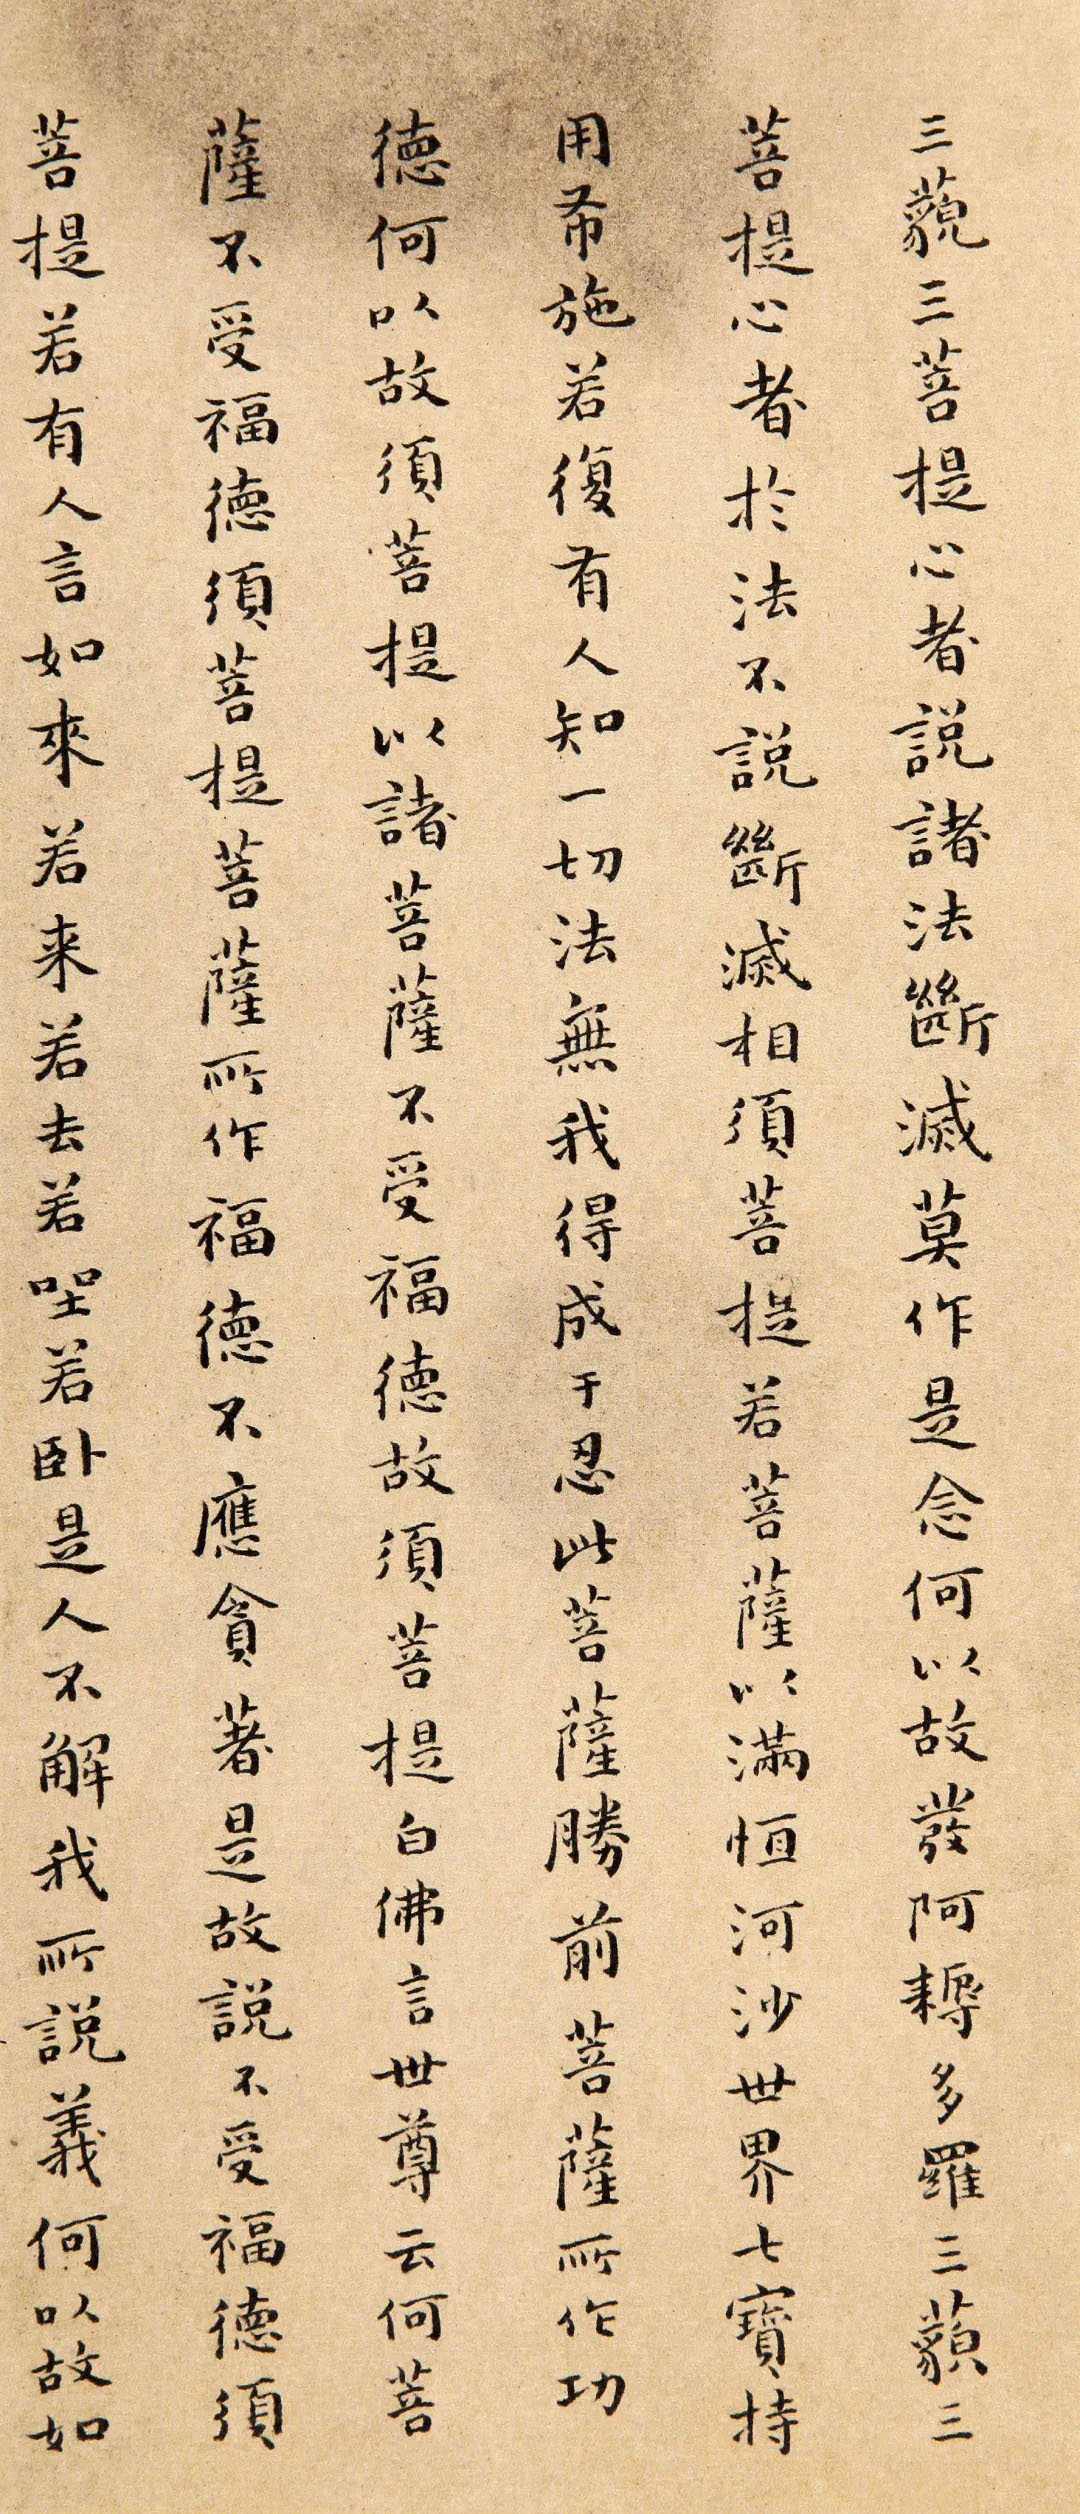 三藐三菩提心者說諸法斷滅莫作是念何以故發阿耨多羅三藐三
菩提心者於法不說斷滅相須菩提若菩薩以滿恒河沙世界七寶持
用布施若復有人知一切法無我得成于忍此菩薩勝前菩薩所作功
德何以故須菩提以諸菩薩不受福德故須菩提白佛言世尊云何菩
薩不受福德須菩提菩薩所作福德不應貪著是故說不受福德須
菩提若有人言如來若来若去若坐若卧是人不解我所說義何以故如